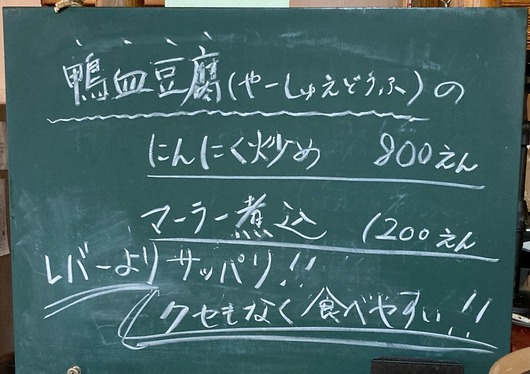 鴨血豆腐(やーしゅえどうふ)の
にんにく炒め 800えん
マーラー煮込 1200えん
レバーよりサッパリ!!
クセもなく食べやすい!!